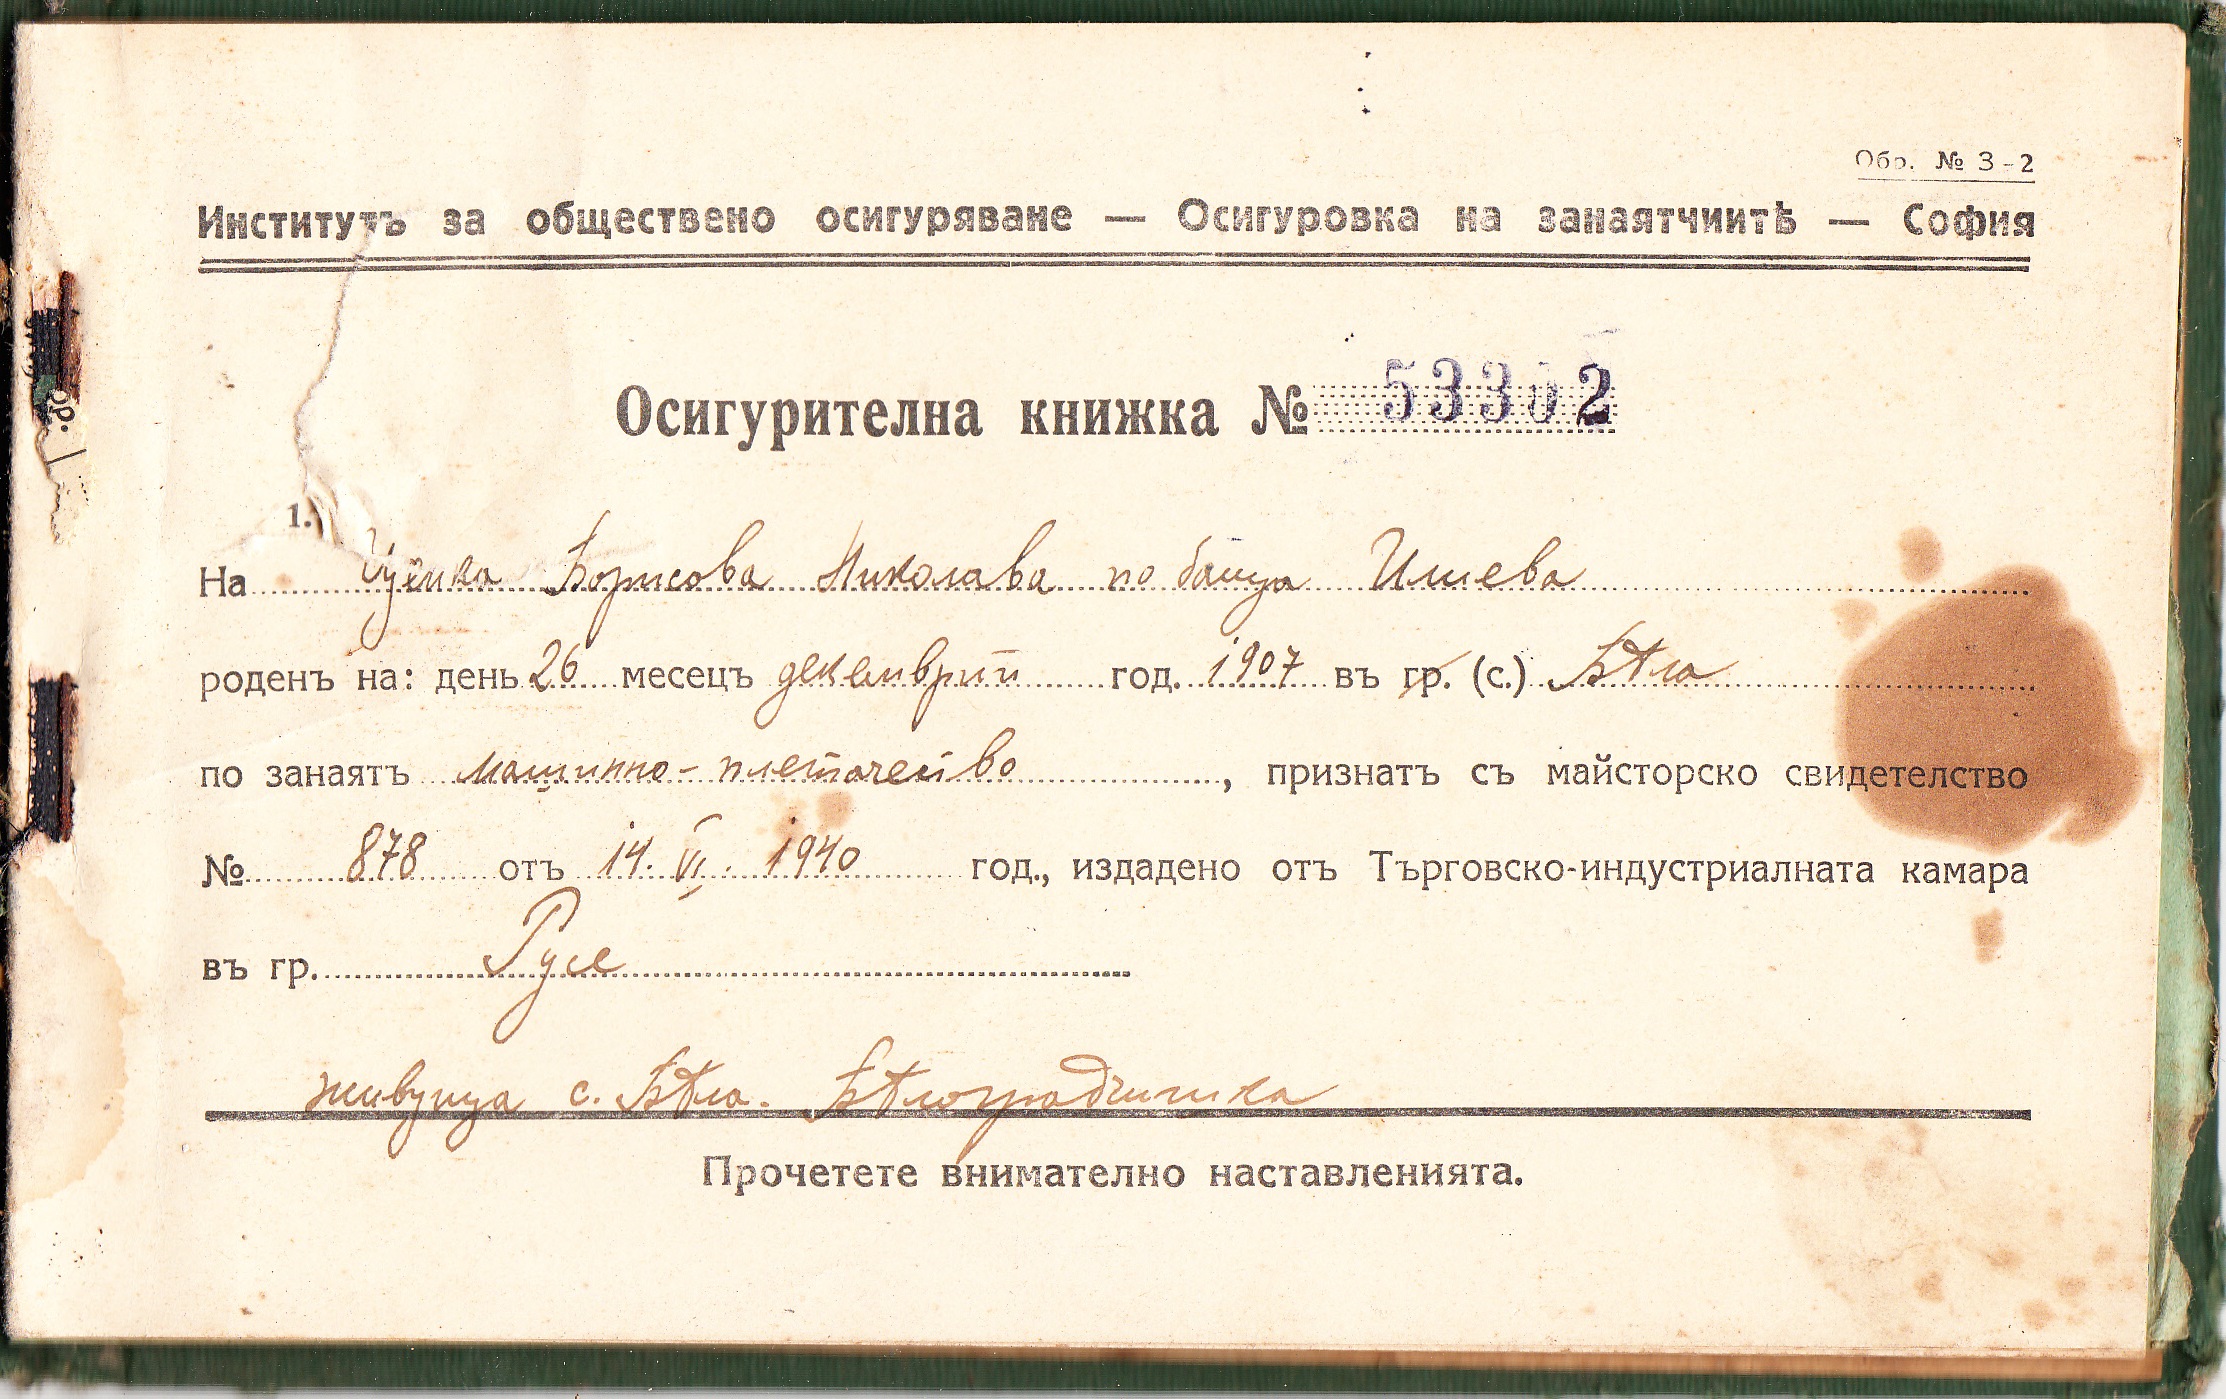 Обр. № 3-2
Институтъ за обществено осигуряване — Осигуровка на занаятчиитѣ — София
Осигурителна книжка № 53302
1.
На Цонка Борисова Николава по баща Илиева
роденъ на: день 26 месецъ декемврий год. 1907 въ гр. (с.) Бѣла
по занаятъ машинно-плетачество, признатъ съ майсторско свидетелство
№ 878 отъ 14. VI. 1940 год., издадено отъ Търговско-индустриалната камара
въ гр. Русе
живуща с. Бѣла. Бѣлоградчишка
Прочетете внимателно наставленията.